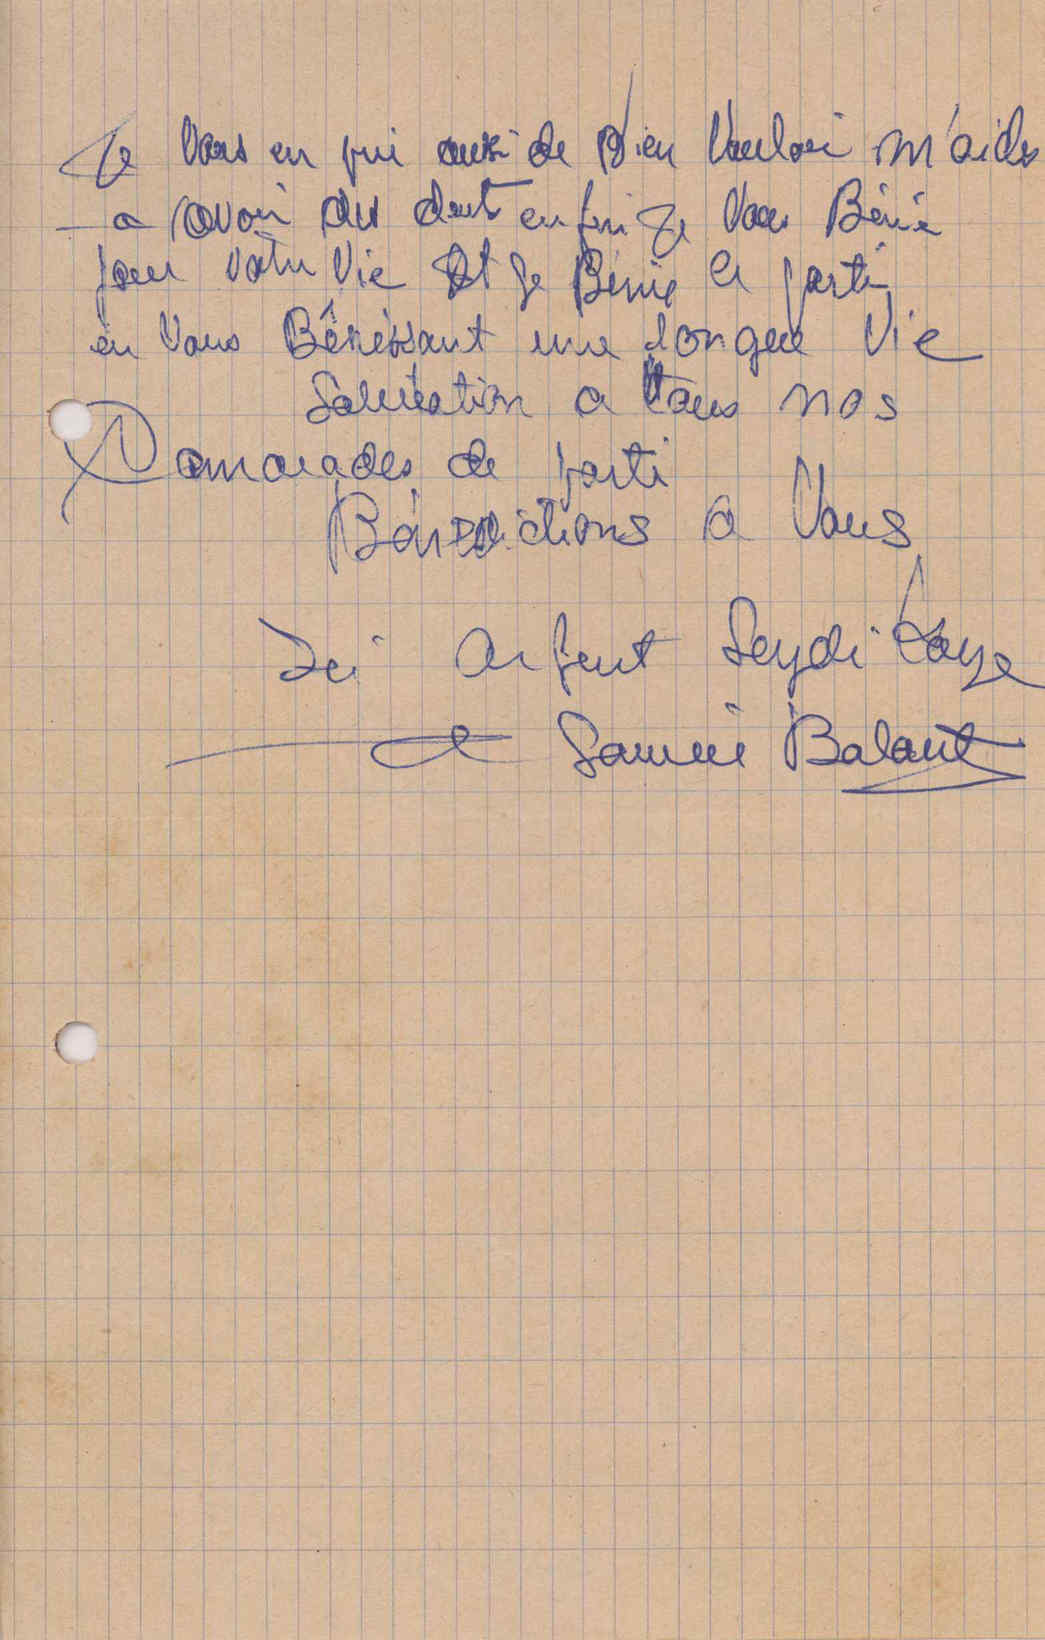 Je Vous en pri aussi de Bien Vouloir m'aider
a avoir des dents en fin Je Vous Bénie
pour Votre Vie Et Je Bénie le parti
en Vous Bénissant une longue Vie
Salutation a tous nos
Camarades de parti
Bénédictions a Vous
Seydi Laye